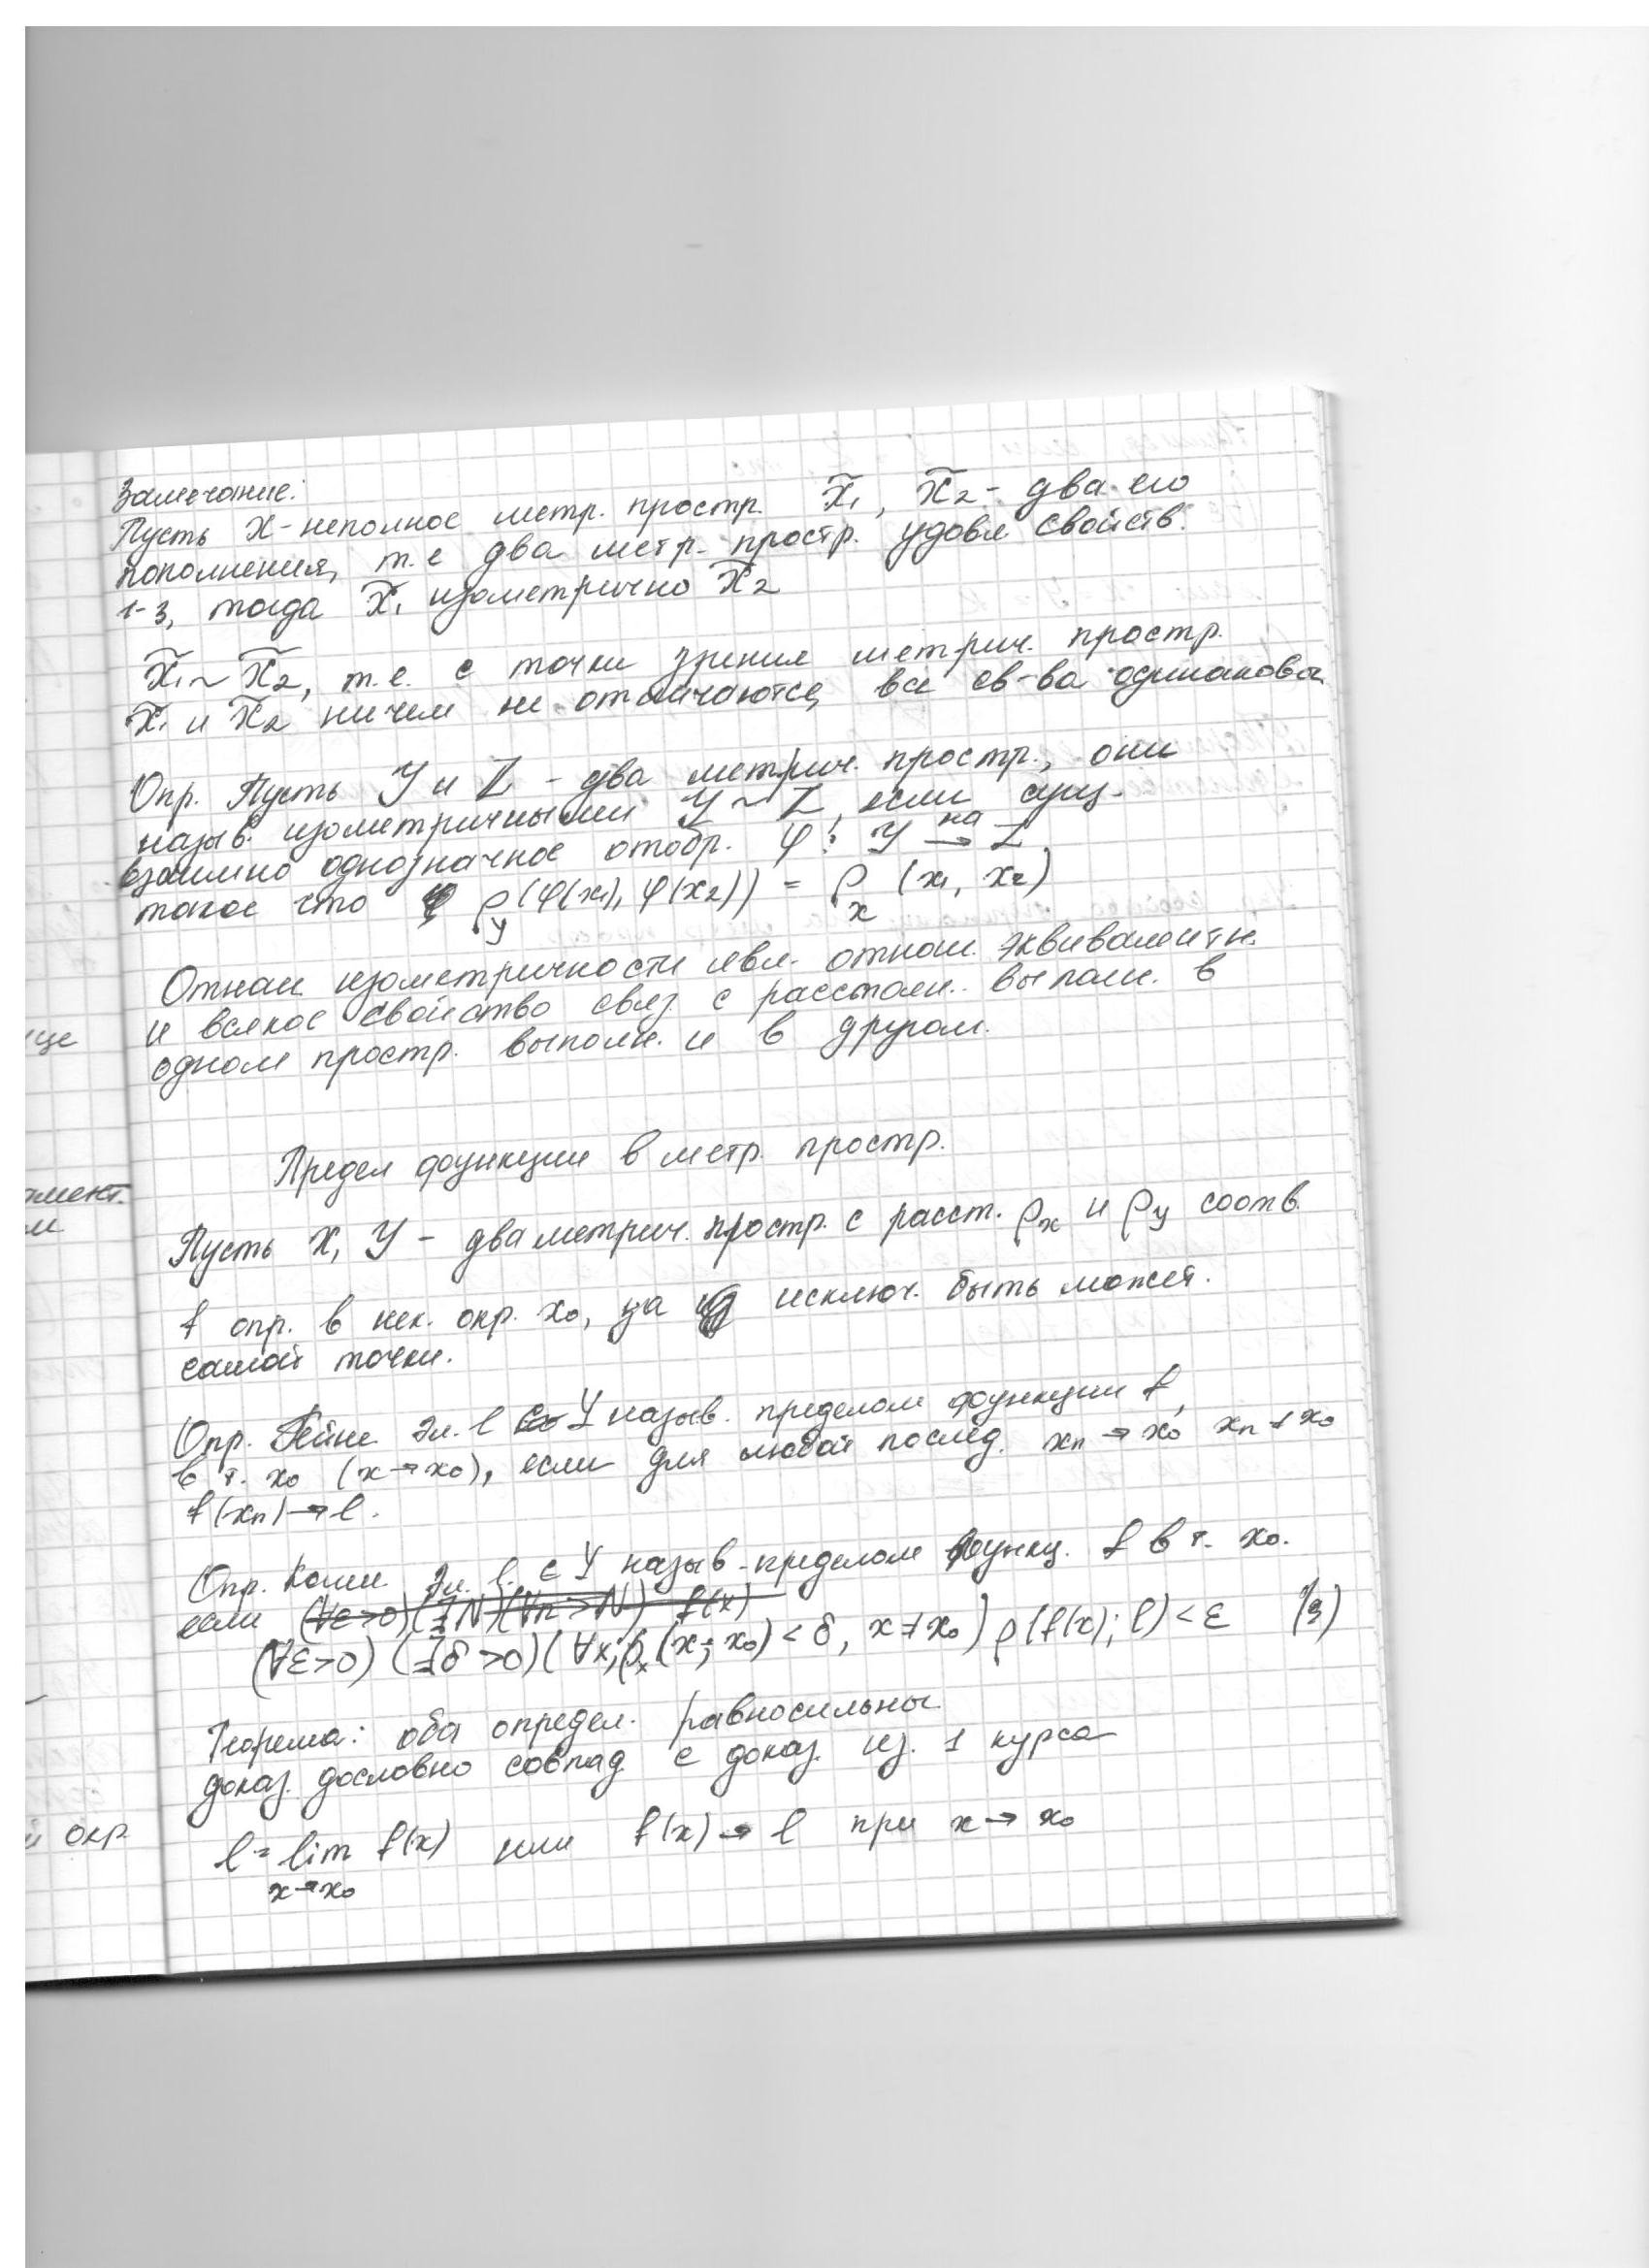 Замечание:
Пусть X - неполное метр. простр. X̃₁, X̃₂ - два его
пополнения, т.е два метр. простр. удовл. свойств.
1-3, тогда X̃₁ изометрично X̃₂
X̃₁ ~ X̃₂, т.е. с точки зрения метрич. простр.
X̃₁ и X̃₂ ничем не отличаются, все св-ва одинаковы
Опр. Пусть Y и Z - два метрич. простр., они
назыв. изометричными Y ~ Z, если сущ.
взаимно однозначное отобр. φ: Y на→ Z,
такое что ρ_y (φ(x₁), φ(x₂)) = ρ_x (x₁, x₂)
Отнош. изометричности явл. отнош. эквивалентн.
и всякое свойство связ. с расстоян. выполн. в
одном простр. выполн. и в другом.
Предел функции в метр. простр.
Пусть X, Y - два метрич. простр. с расст. ρ_x и ρ_y соотв.
f опр. в нек. окр. x₀, за исключ. быть может.
самой точки.
Опр. Гейне Эл. l ∈ Y назыв. пределом функции f,
в т. x₀ (x→x₀), если для любой послед. xₙ → x₀, xₙ ≠ x₀
f(xₙ) → l.
Опр. Коши Эл. l ∈ Y назыв. пределом функц. f в т. x₀.
если (∀ε>0)(∃N)(∀n>N) f(x)
(∀ε>0) (∃δ>0)(∀x; ρ_x(x; x₀) < δ, x≠x₀) ρ(f(x); l) < ε (3)
Теорема: оба определ. равносильны
доказ. дословно совпад. с доказ. из. 1 курса
l = lim f(x) или f(x) → l при x → x₀
x→x₀
ще
мент.
м
окр.